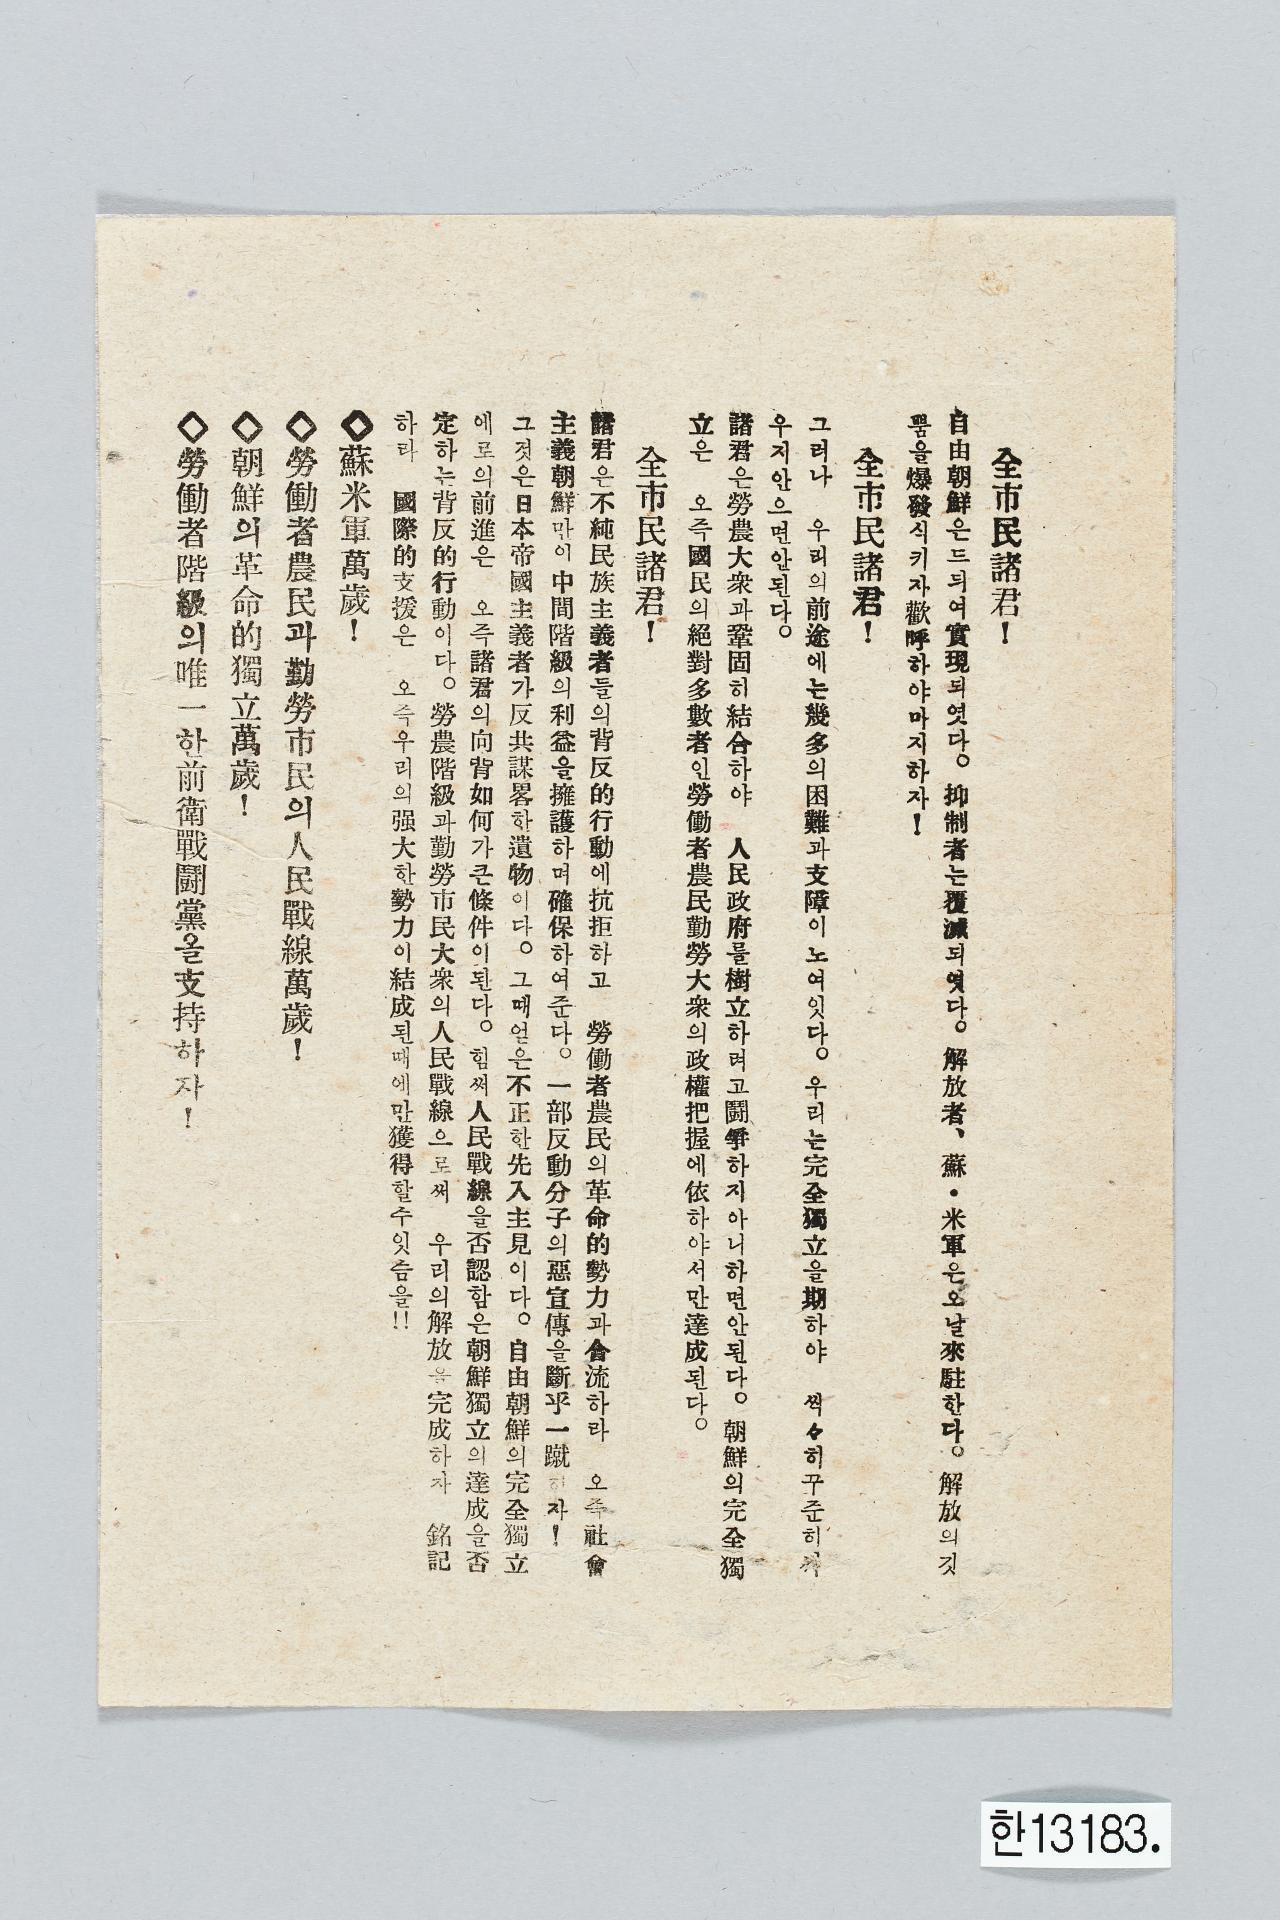 全市民諸君!
自由朝鮮은드듸여實現되엿다。抑制者는覆滅되엿다。解放者、蘇·米軍은오날來駐한다。解放의깃
뿜을爆發식키자歡呼하야마지하자!
全市民諸君!
그러나 우리의前途에는幾多의困難과支障이노여잇다。우리는完全獨立을期하야 씩々히꾸준히싸
우지안으면안된다。
諸君은勞農大衆과鞏固히結合하야 人民政府를樹立하려고鬪爭하지아니하면안된다。朝鮮의完全獨
立은 오즉國民의絕對多數者인勞働者農民勤勞大衆의政權把握에依하야서만達成된다。
全市民諸君!
諸君은不純民族主義者들의背反的行動에抗拒하고 勞働者農民의革命的勢力과合流하라 오즉社會
主義朝鮮만이中間階級의利益을擁護하며確保하여준다。一部反動分子의惡宣傳을斷乎一蹴하자!
그것은日本帝國主義者가反共謀畧한遺物이다。그때얻은不正한先入主見이다。自由朝鮮의完全獨立
에로의前進은 오즉諸君의向背如何가큰條件이된다。힘써人民戰線을否認함은朝鮮獨立의達成을否
定하는背反的行動이다。勞農階級과勤勞市民大衆의人民戰線으로써 우리의解放을完成하자 銘記
하라 國際的支援은 오즉우리의强大한勢力이結成된때에만獲得할수잇슴을!!
◇蘇米軍萬歲!
◇勞働者農民과勤勞市民의人民戰線萬歲!
◇朝鮮의革命的獨立萬歲!
◇勞働者階級의唯一한前衛戰鬪黨을支持하자!
한13183.